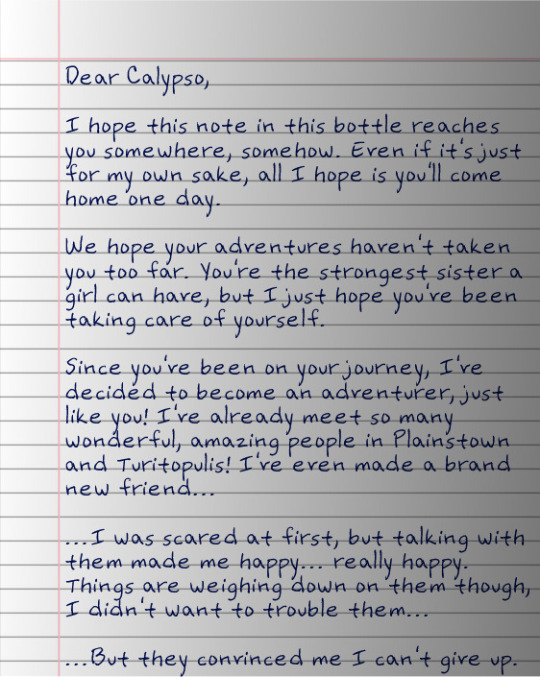 Dear Calypso,
I hope this note in this bottle reaches
you somewhere, somehow. Even if it's just
for my own sake, all I hope is you'll come
home one day.
We hope your adventures haven't taken
you too far. You're the strongest sister a
girl can have, but I just hope you've been
taking care of yourself.
Since you've been on your journey, I've
decided to become an adventurer, just
like you! I've already meet so many
wonderful, amazing people in Plainstown
and Turitopulis! I've even made a brand
new friend...
...I was scared at first, but talking with
them made me happy... really happy.
Things are weighing down on them though,
I didn't want to trouble them...
...But they convinced me I can't give up.